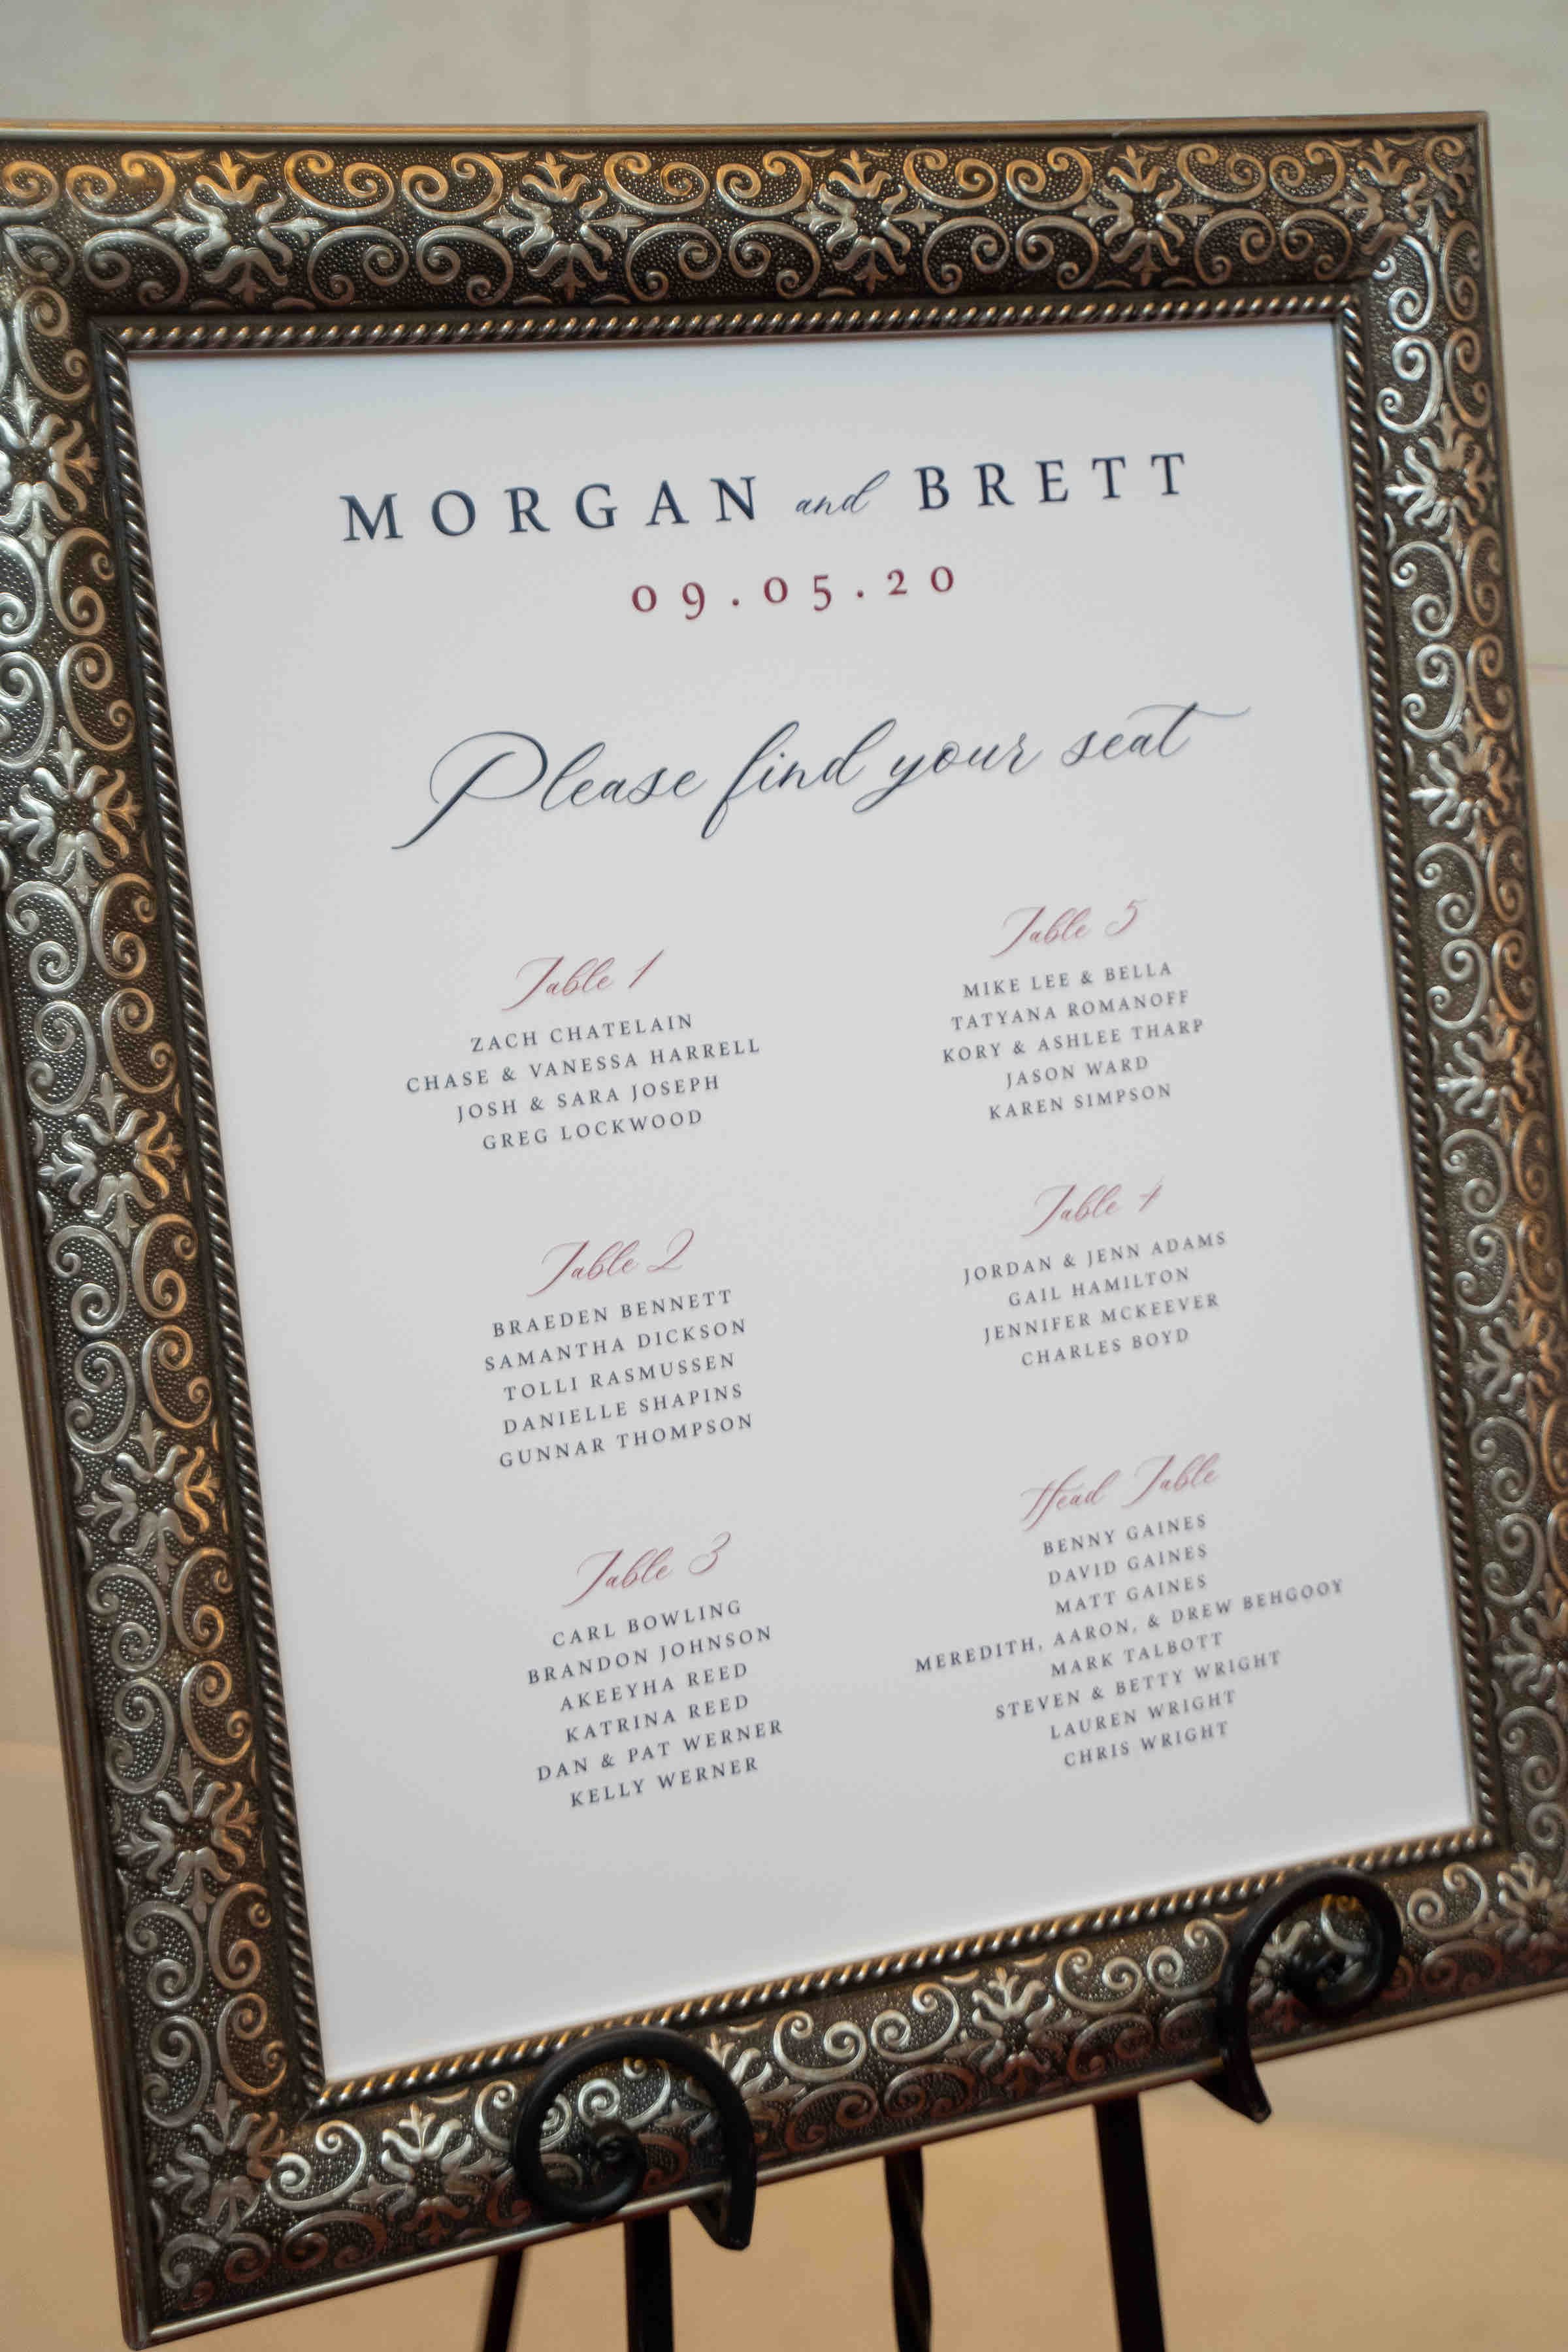 MORGAN and BRETT
09.05.20
Please find your seat
Table 1
ZACH CHATELAIN
CHASE & VANESSA HARRELL
JOSH & SARA JOSEPH
GREG LOCKWOOD
Table 2
BRAEDEN BENNETT
SAMANTHA DICKSON
TOLLI RASMUSSEN
DANIELLE SHAPINS
GUNNAR THOMPSON
Table 3
CARL BOWLING
BRANDON JOHNSON
AKEEYHA REED
KATRINA REED
DAN & PAT WERNER
KELLY WERNER
Table 5
MIKE LEE & BELLA
TATYANA ROMANOFF
KORY & ASHLEE THARP
JASON WARD
KAREN SIMPSON
Table 4
JORDAN & JENN ADAMS
GAIL HAMILTON
JENNIFER MCKEEVER
CHARLES BOYD
Head Table
BENNY GAINES
DAVID GAINES
MATT GAINES
MEREDITH, AARON, & DREW BEHGOOY
MARK TALBOTT
STEVEN & BETTY WRIGHT
LAUREN WRIGHT
CHRIS WRIGHT